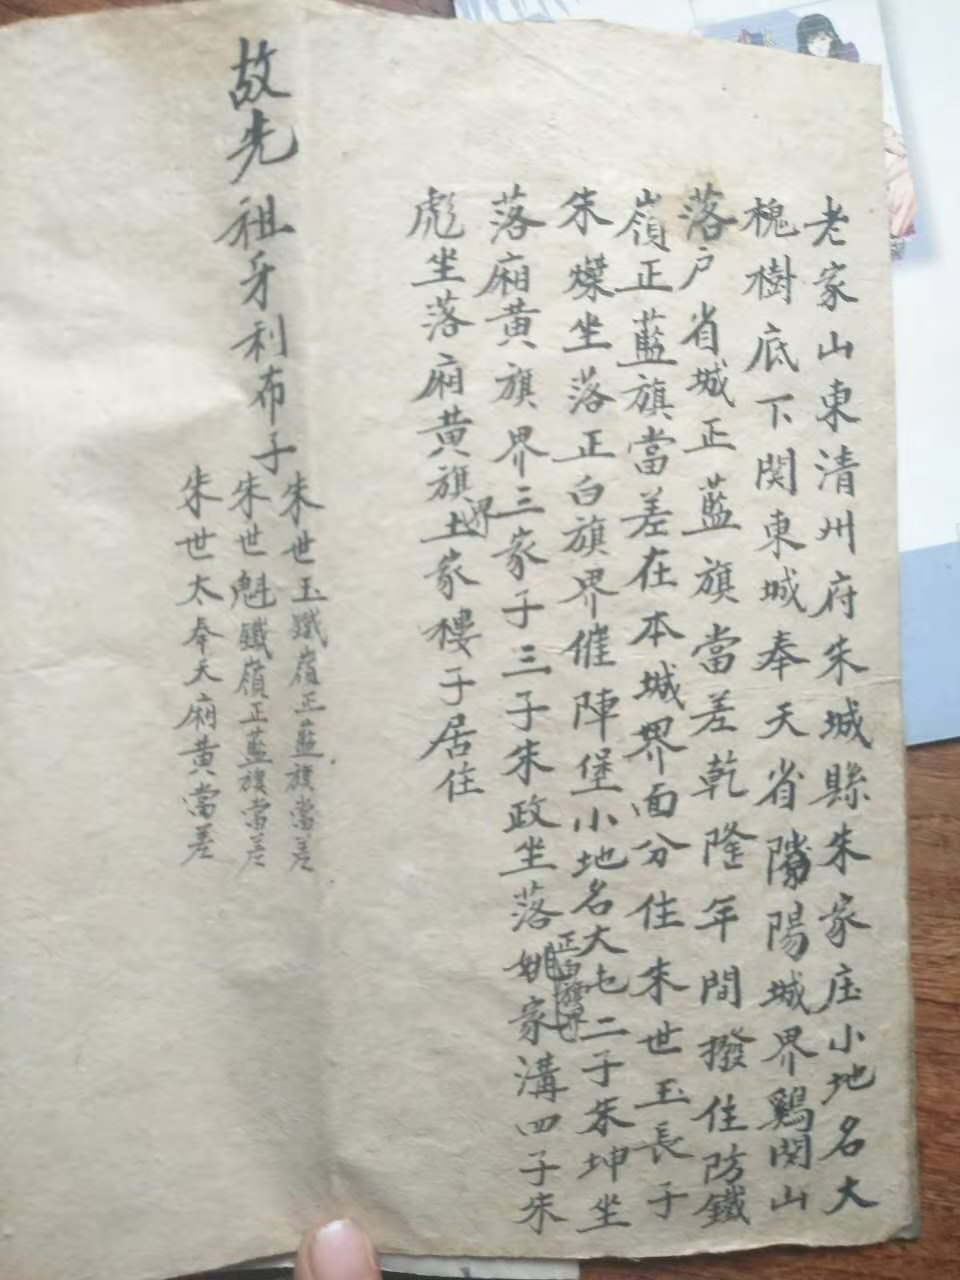 老家山東清州府朱城縣朱家庄小地名大
槐樹底下関東城奉天省陽城界鷄関山
落户省城正藍旗當差乾隆年間撥住防鐵
嶺正藍旗當差在本城界面分住朱世玉長子
朱燦坐落正白旗界催陣堡小地名大屯二子朱坤坐
落廂黄旗界三家子三子朱政坐落姚家溝四子朱
正白旗界
彪坐落廂黄旗界土家樓子居住
故先祖牙利布子
朱世玉鐵嶺正藍旗當差
朱世魁鐵嶺正藍旗當差
朱世太奉天廂黄當差